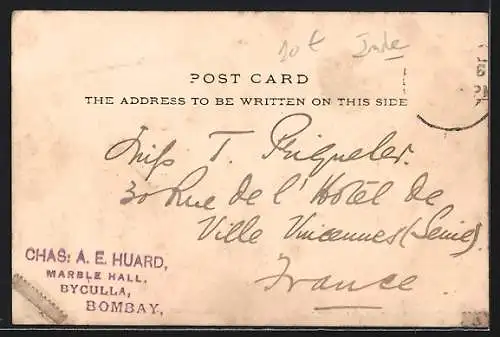 20t Inde
POST CARD
THE ADDRESS TO BE WRITTEN ON THIS SIDE
6
PM
Miss T.
30 Rue de l'Hôtel de
Ville Vincennes (Seine).
France.
CHAS: A. E. HUARD,
MARBLE HALL,
BYCULLA,
BOMBAY,